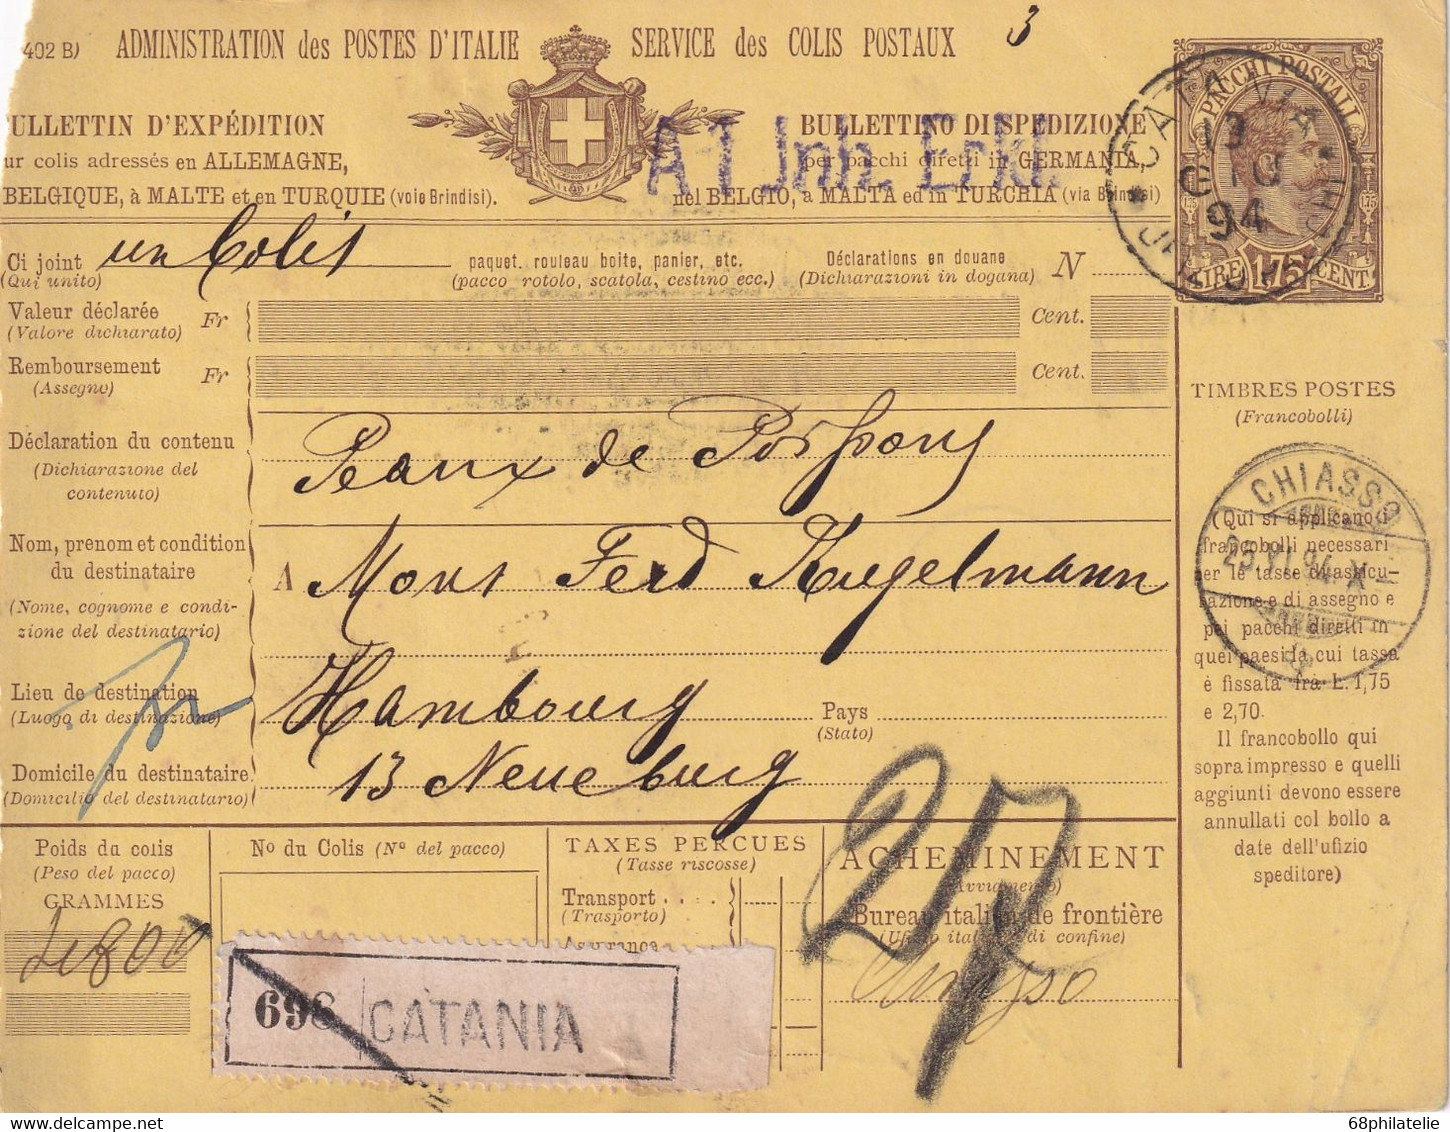 402 B) ADMINISTRATION des POSTES D'ITALIE SERVICE des COLIS POSTAUX 3
ULLETTIN D'EXPÉDITION
ur colis adressés en ALLEMAGNE,
BELGIQUE, à MALTE et en TURQUIE (voie Brindisi).
BULLETTINO DI SPEDIZIONE
per pacchi diretti in GERMANIA,
nel BELGIO, a MALTA ed in TURCHIA (via Brindisi)
A 1 Jnh. Erkl.
PACCHI POSTALI
1.75 1.75
LIRE 1.75 CENT.
CATANIA
13 GIU 94
Ci joint un Colis paquet. rouleau boite, panier, etc. Déclarations en douane N
(Qui unito) (pacco rotolo, scatola, cestino ecc.) (Dichiarazioni in dogana)
Valeur déclarée Fr Cent.
(Valore dichiarato)
Remboursement Fr Cent.
(Assegno)
TIMBRES POSTES
(Francobolli)
Déclaration du contenu
(Dichiarazione del
contenuto)
Peaux de
CHIASSO
25 VI 94 X
Nom, prenom et condition
du destinataire
(Nome, cognome e condi-
zione del destinatario)
A Mons Ferd Kugelmann
Lieu de destination Hambourg Pays
(Luogo di destinazione) (Stato)
Domicile du destinataire 13 Neueburg
(Domicilio del destinatario)
(Qui si applicano i
francobolli necessari
per le tasse di assicu-
razione e di assegno e
pei pacchi diretti in
quei paesi la cui tassa
è fissata fra L. 1,75
e 2,70.
Il francobollo qui
sopra impresso e quelli
aggiunti devono essere
annullati col bollo a
date dell'ufizio
speditore)
Poids du colis
(Peso del pacco)
GRAMMES
4800
No du Colis (No del pacco)
TAXES PERCUES
(Tasse riscosse)
Transport
(Trasporto)
Assurance
27
ACHEMINEMENT
(Avviamento)
Bureau italien de frontière
(Ufizio italiano di confine)
Chiasso
698 CATANIA
delcampe.net
68philatelie